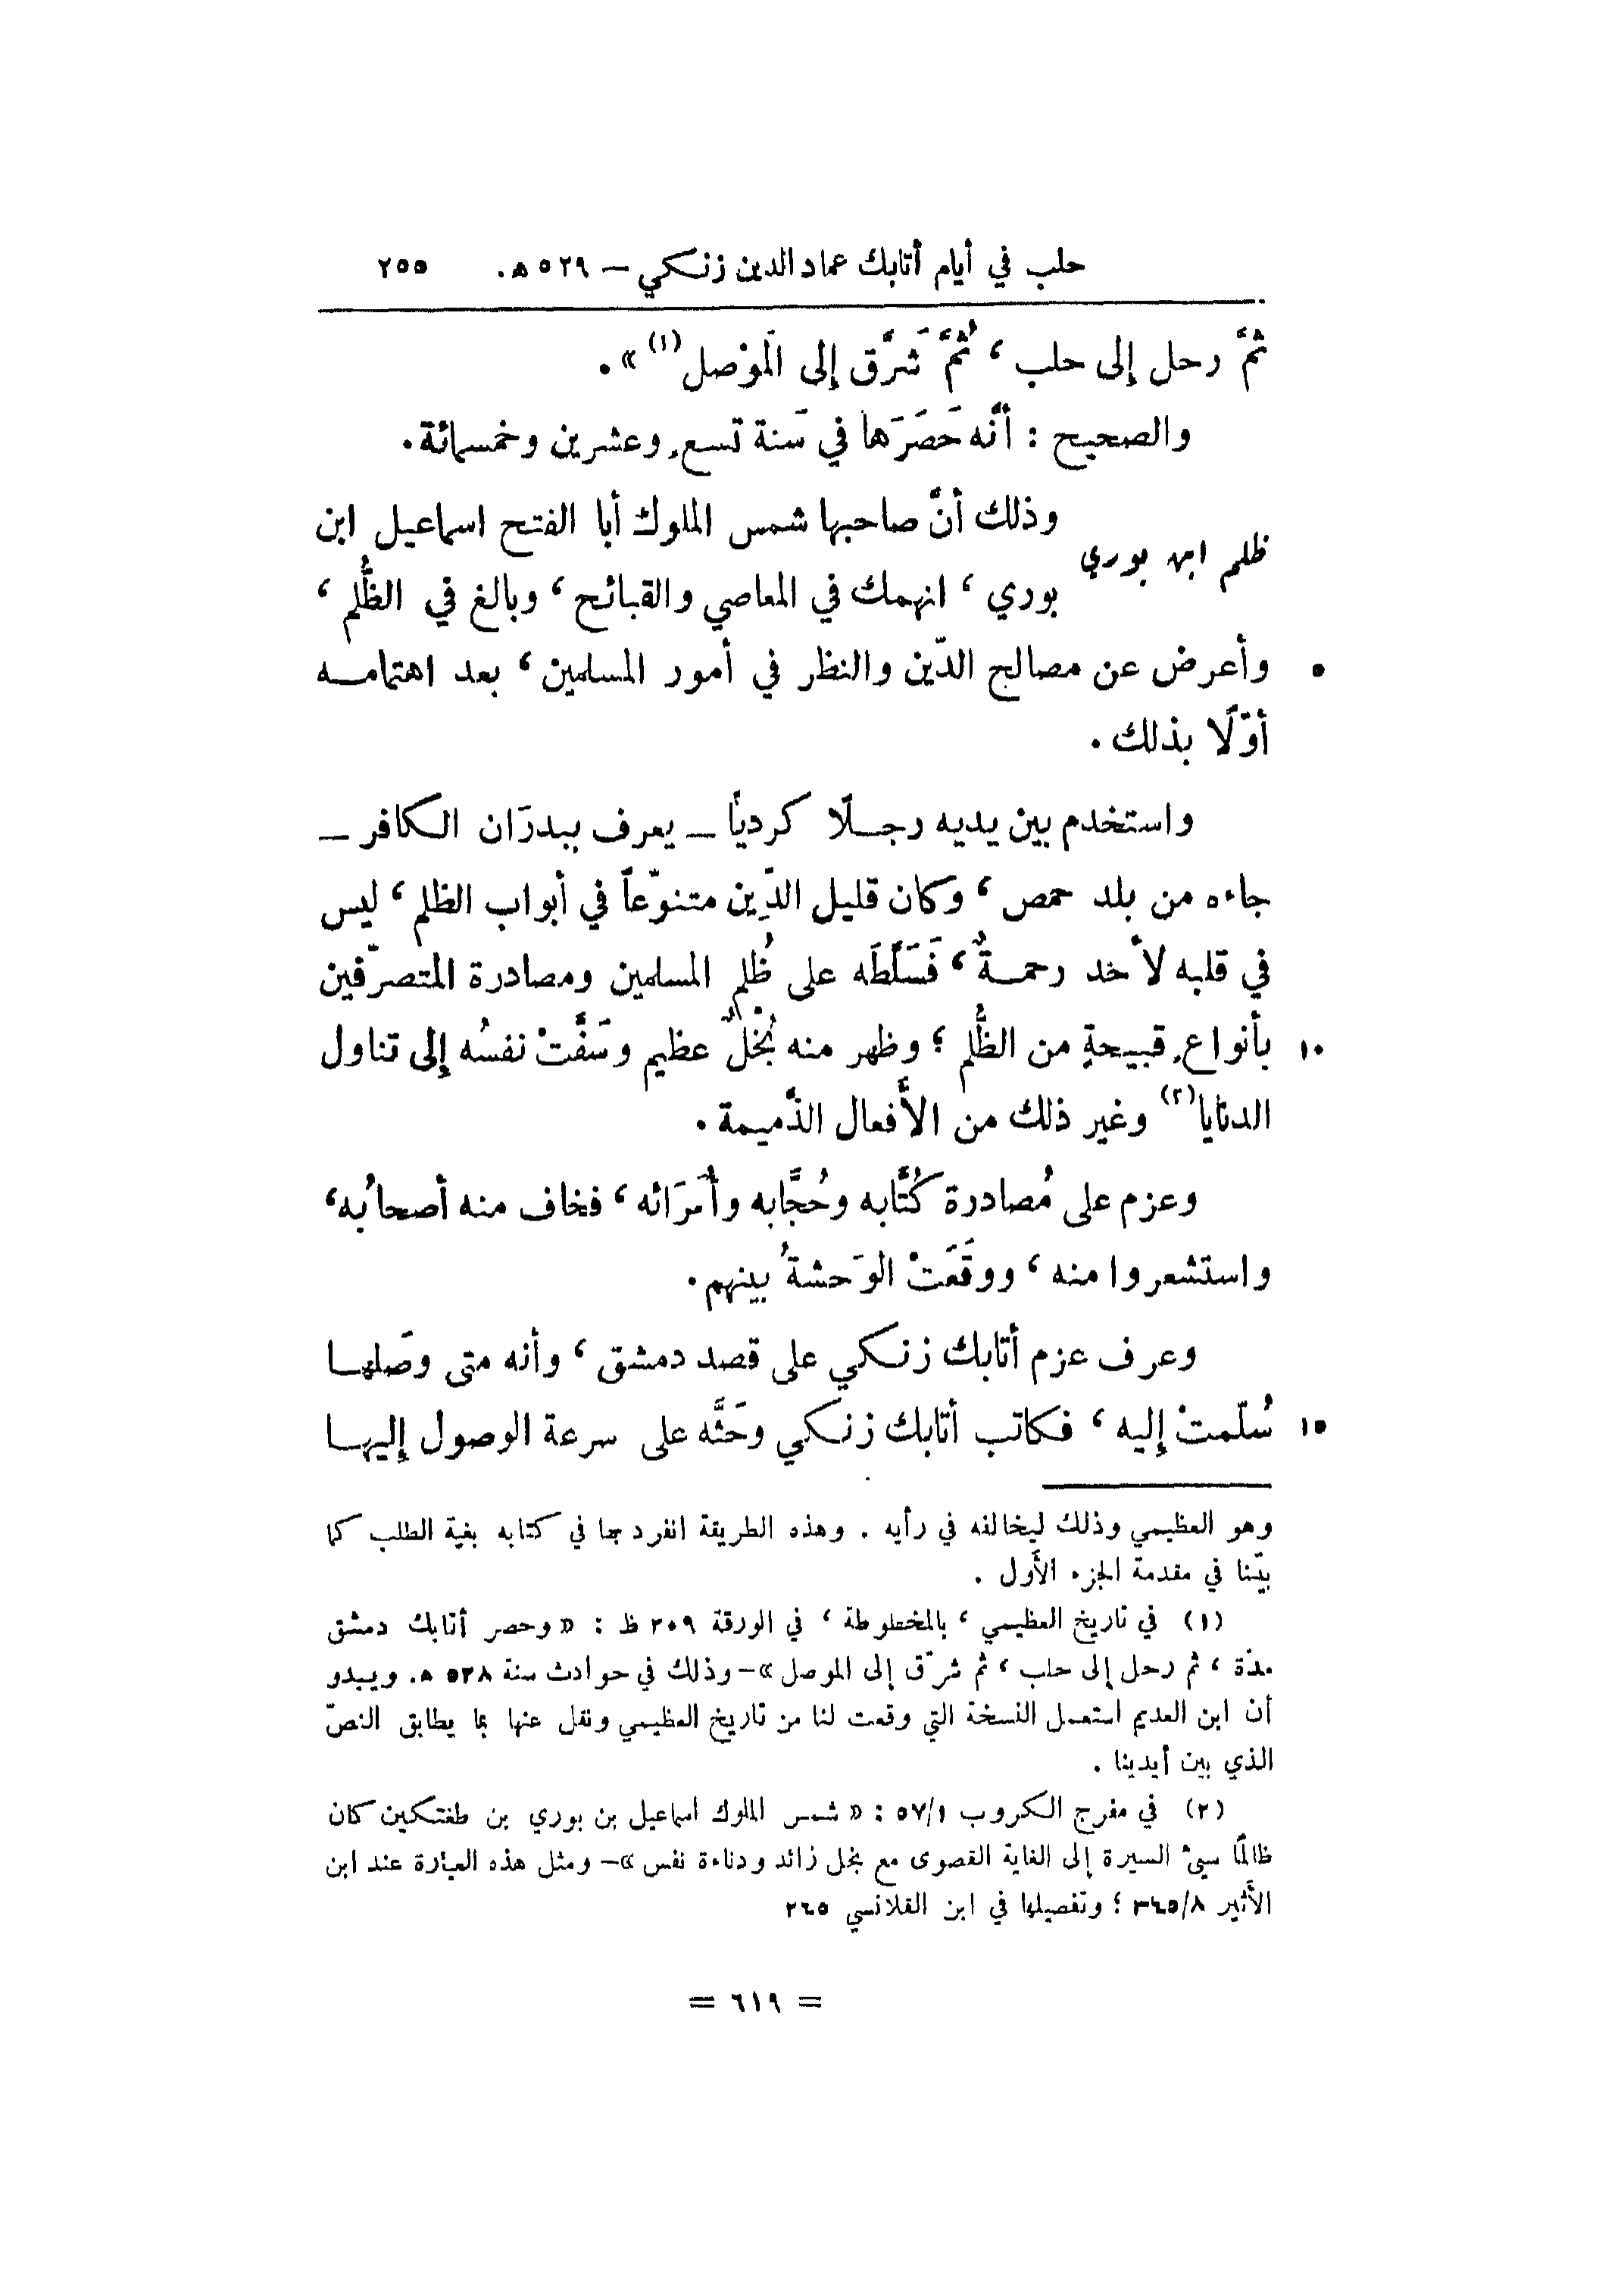 حلب في أيام أتابك عماد الدين زنكي – ٥٢٩ ه. ٢٥٥
ثمَّ رحل إلى حلب ، ثُمَّ شَرَّق إلى المَوْصل(١) » .
والصحيح : أنَّه حَصَرَها في سَنة تسعٍ وعشرين وخمسمائة .
ظلم ابن بوري
وذلك أنَّ صاحبها شمس الملوك أبا الفتح اسماعيل ابن
بوري ، انهمك في المعاصي والقبائح ، وبالغ في الظُّلم ،
٥ وأعرض عن مصالح الدّين والنظر في أمور المسلمين ، بعد اهتمامه
أوّلًا بذلك .
واستخدم بين يديه رجلًا كرديًا – يعرف ببدرَان الكافر –
جاءه من بلد حمص ، وكان قليل الدِّين متنوّعاً في أبواب الظلم ، ليس
في قلبه لأحد رحمةٌ ، فَسَلَّطَه على ظُلم المسلمين ومصادرة المتصرّفين
١٠ بأنواعٍ قبيحةٍ من الظُّلم ؛ وظهر منه بُخْلٌ عظيم وسَفَّتْ نفسُه إلى تناول
الدنايا(٢) وغير ذلك من الأَفعال الذَّميمة .
وعزم على مُصادرة كُتَّابه وحُجَّابه وأُمَرَائه ، فخاف منه أصحابُه ،
واستشعروا منه ، ووقَعَتْ الوَحشةُ بينهم .
وعرف عزم أتابك زنكي على قصد دمشق ، وأنه متى وصَلها
١٥ سُلّمتْ إليه ، فكاتب أتابك زنكي وحَثَّه على سرعة الوصول إليها
وهو العظيمي وذلك ليخالفه في رأيه . وهذه الطريقة انفرد بها في كتابه بغية الطلب كما
بيّنا في مقدمة الجزء الأَول .
(١) في تاريخ العظيمي ، بالمخطوطة ، في الورقة ٢٠٩ ظ : « وحصر أتابك دمشق
مدّة ، ثم رحل إلى حلب ، ثم شرّق إلى الموصل » – وذلك في حوادث سنة ٥٢٨ ه. ويبدو
أن ابن العديم استعمل النسخة التي وقعت لنا من تاريخ العظيمي ونقل عنها بما يطابق النصّ
الذي بين أيدينا .
(٢) في مفرج الكروب ٥٧/١ : « شمس الملوك اسماعيل بن بوري بن طغتكين كان
ظالمًا سيئ السيرة إلى الغاية القصوى مع بخل زائد ودناءة نفس » – ومثل هذه العبارة عند ابن
الأثير ٣٤٥/٨ ؛ وتفصيلها في ابن القلانسي ٢٤٥
= ٦١٩ =